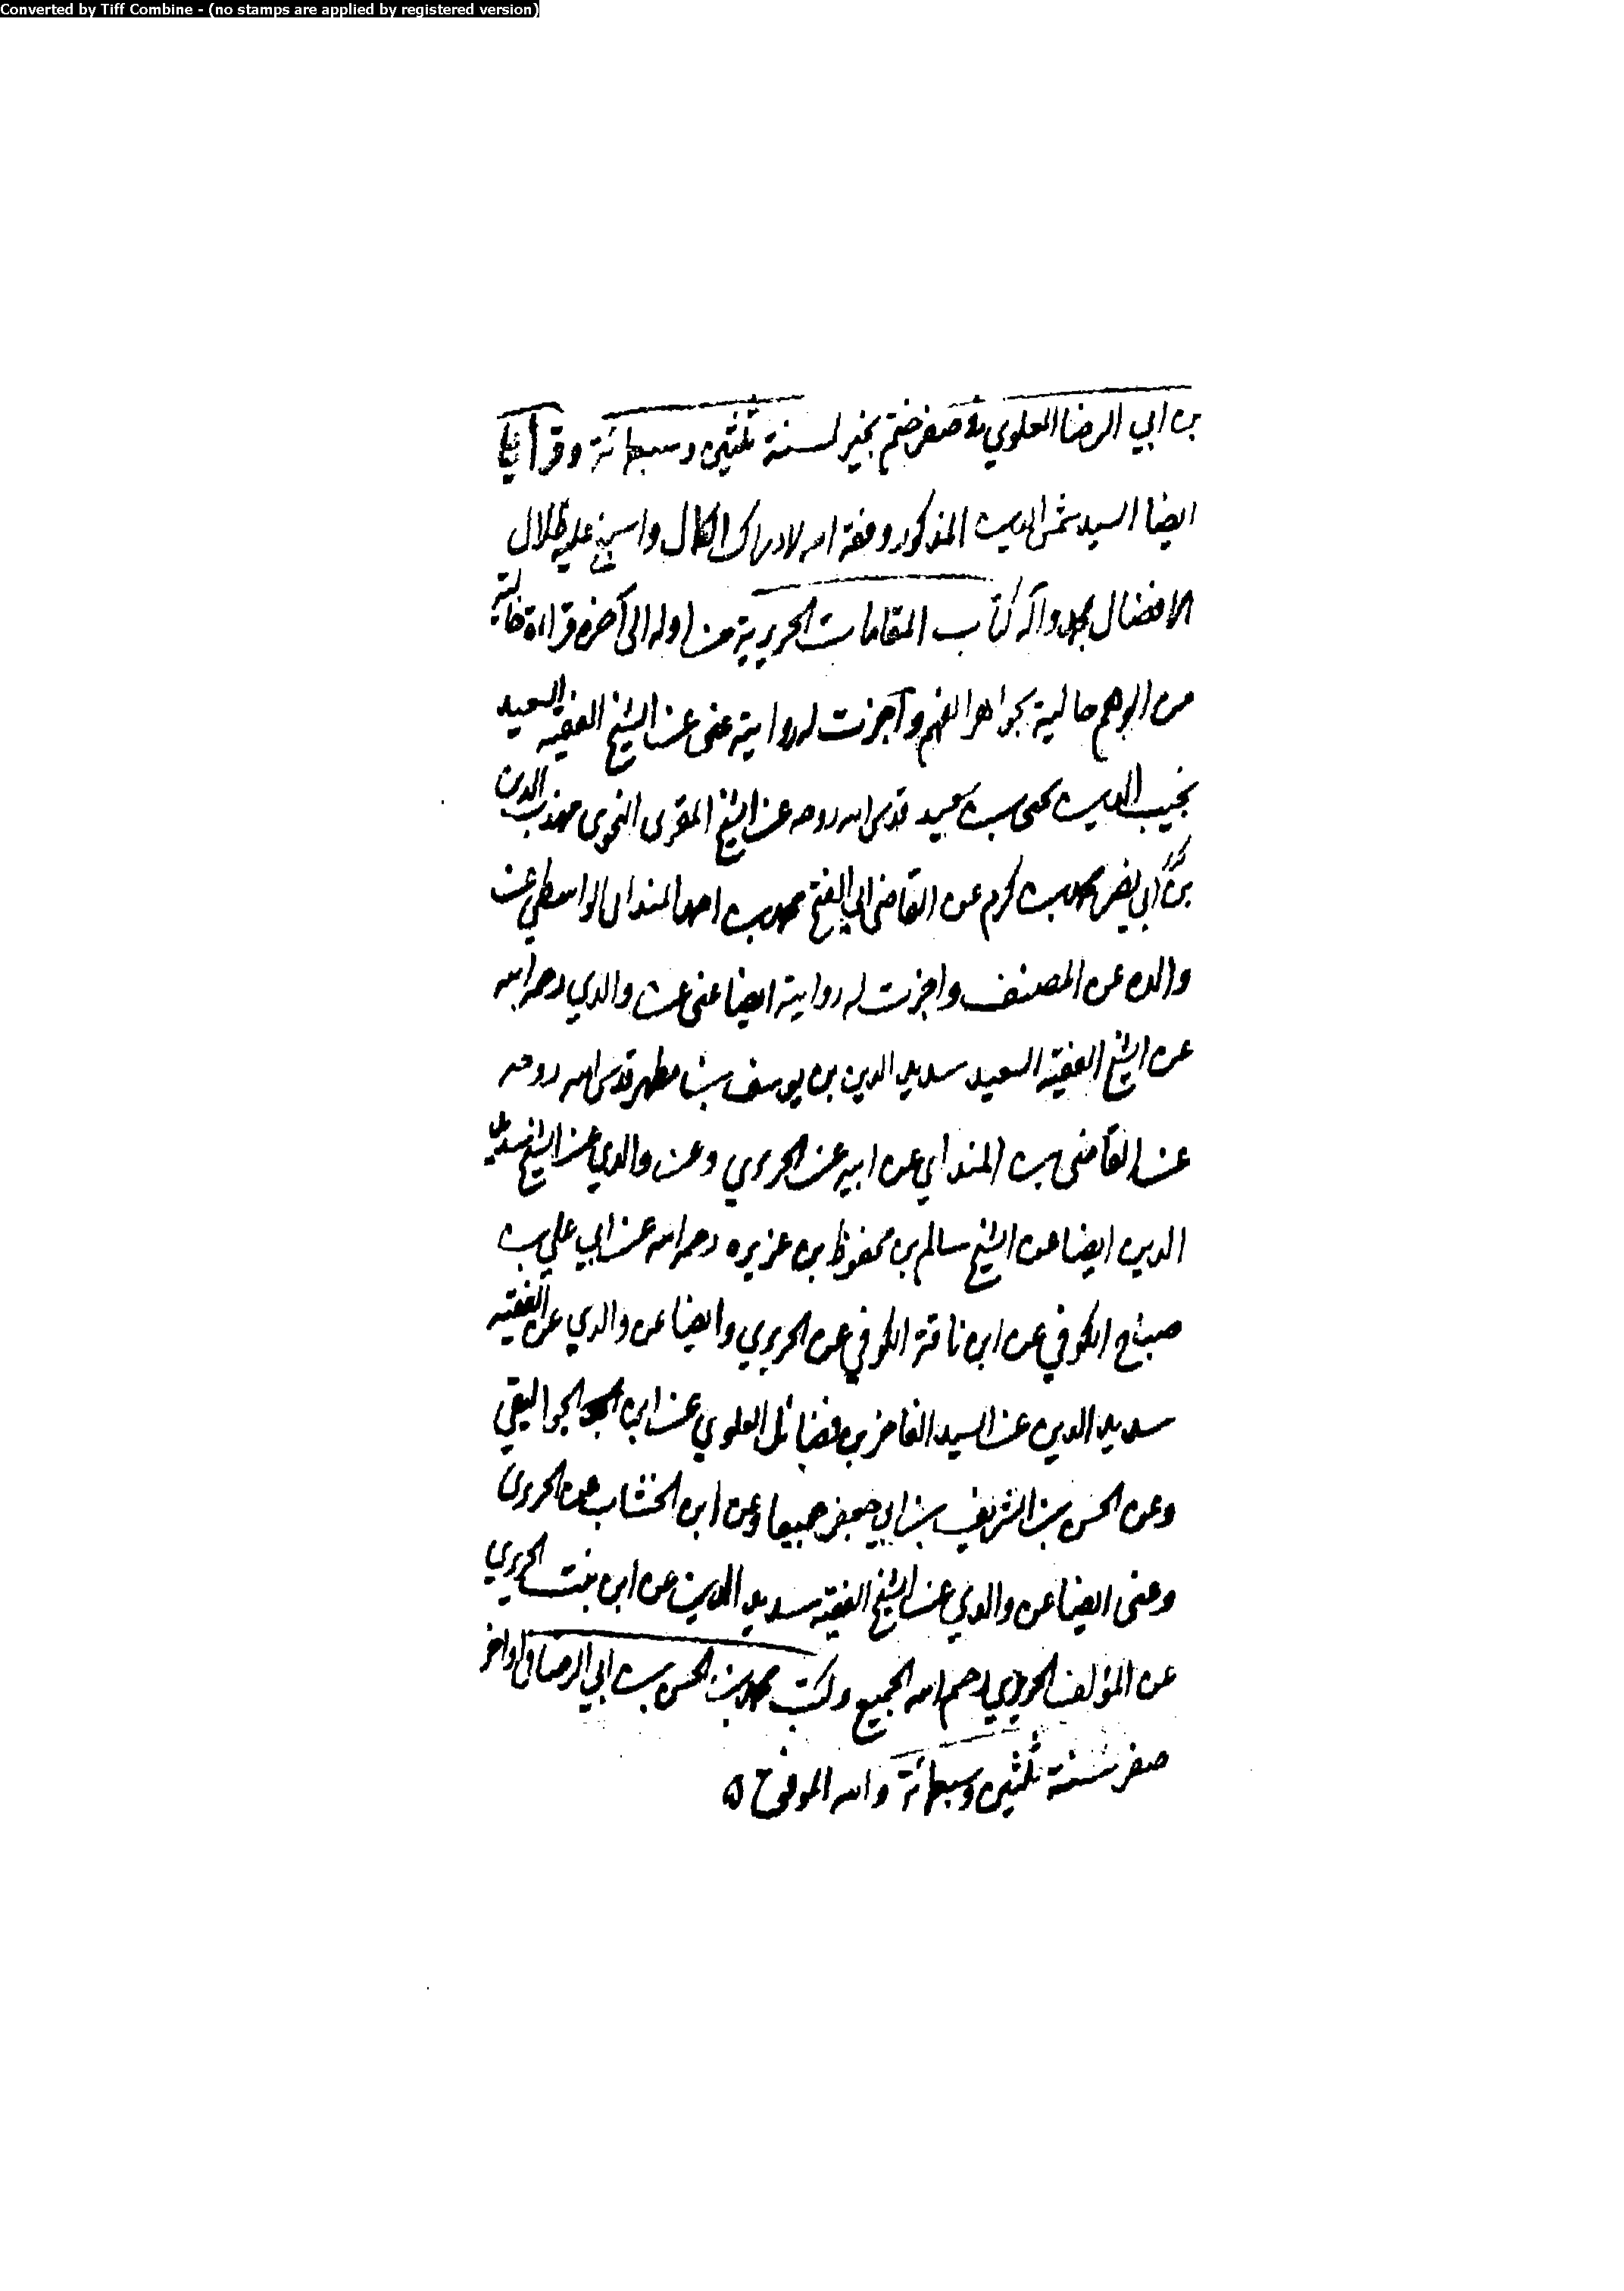 Converted by Tiff Combine - (no stamps are applied by registered version)
بن ابي الرضا العلوي في صفر ختم بخير لسنة ثلثين وسبعمائة وقرأ
ايضا السيد شمس الدين المذكور وفقه الله لادراك الكمال واسبغ عليه ظلال
الافضال بمحمد وآله كتاب المقامات الحريرية من اوله الى آخره قراءة خالية
من الوهم حالية بجواهر الفهم وآجزت له روايته عنى عن الشيخ الفقيه السعيد
نجيب الدين يحيى بن سعيد قدس الله روحه عن الشيخ المقرى النحوى مهذب الدين
بن محمد بن كرم عن القاضى ابي الفتح محمد بن احمد المنداى الواسطي عن
والده عن المصنف واجزت له روايته ايضا عنى عن والدي رحمه الله
عن الشيخ الفقيه السعيد سديد الدين بن يوسف بن مطهر قدس الله روحه
عن القاضى بن المنداي عن ابيه عن الحريري وعن والدي عن الشيخ سديد
الدين ايضا عن الشيخ سالم بن محفوظ بن عزيزه رحمه الله عن ابي علي بن
صباح الكوفي عن ابن ناقة الكوفي عن الحريري وايضا عن والدي عن الفقيه
سديد الدين عن السيد الفاخر بن فضائل العلوي عن ابن الجواليقي
وعن الحسن بن الشريف بن ابي جعفر جميعا وعن ابن الخشاب عن الحريرى
وعنى ايضا عن والدي عن الشيخ الفقيه سديد الدين عن ابن بنت الحريري
عن المؤلف الحريري رحمهم الله الجميع وكتب محمد بن الحسن بن ابي الرضا في اواخر
صفر سنة ثلثين وسبعمائة والله الموفق